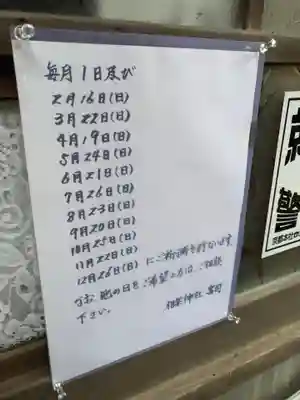 毎月1日及び
2月16日(日)
3月22日(日)
4月19日(日)
5月24日(日)
6月21日(日)
7月26日(日)
8月23日(日)
9月20日(日)
10月25日(日)
11月22日(日)
12月26日(日)にご祈祷を行ないます
なお他の日をご希望の方はご相談
下さい。
神社 宮司
警